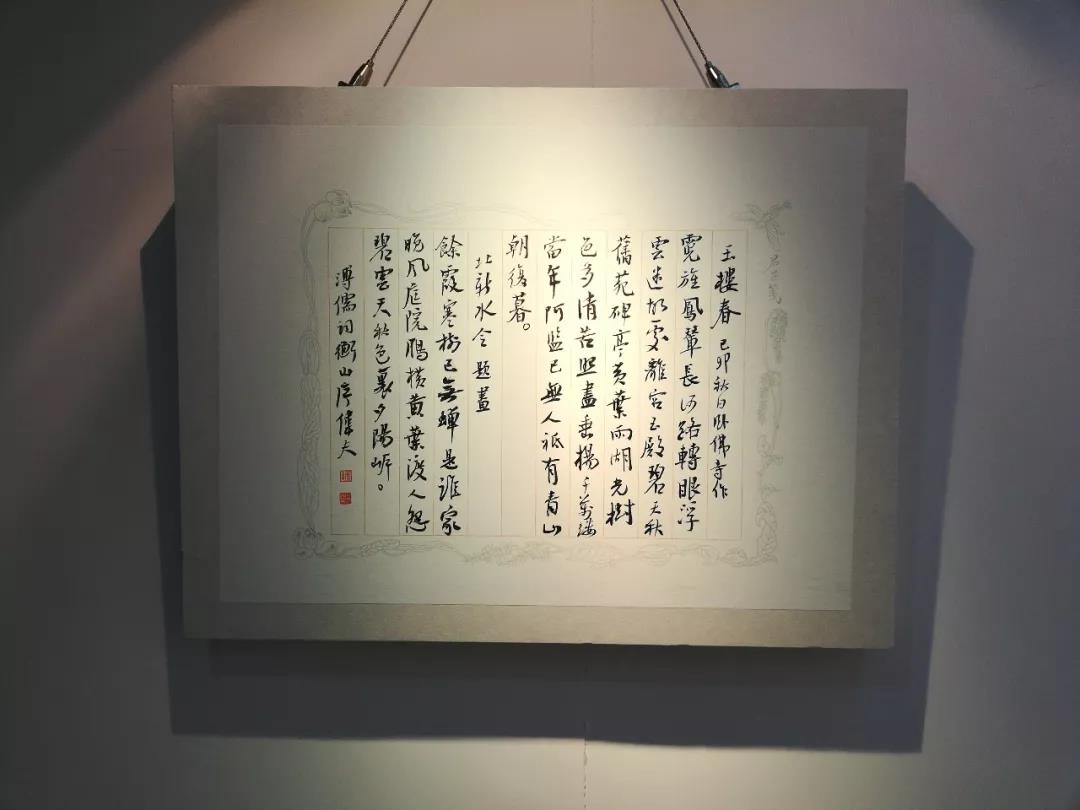 玉樓春 己卯秋日臥佛寺作
霓旌鳳輦長河路轉眼浮
雲迷所處離宮玉殿碧天秋
舊苑碑亭黃葉雨湖光樹
色多情苦照盡垂楊千萬縷
當年阿監已無人祗有青山
朝復暮。
北新水令 題畫
餘霞寒樹已無蟬是誰家
晚風庭院鴈橫黃葉渡人怨
碧雲天秋色裏夕陽岸。
溥儒詞衡山序偉夫